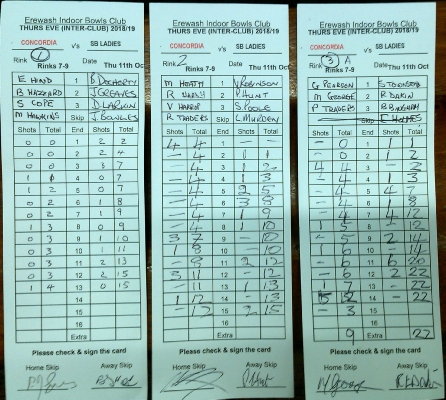 Erewash Indoor Bowls Club
THURS EVE (INTER-CLUB) 2018/19
CONCORDIA v's SB LADIES
Rink 1 Date Thu 11th Oct
Rinks 7-9
E HAND B DOCHERTY
B HAZZARD J GREAVES
S COPE D LARKIN
M HAWKINS Skip J BOWLES
Shots Total End Shots Total
0 0 1 2 2
0 0 2 2 4
0 0 3 3 7
1 0 4 0 7
1 2 5 0 7
0 2 6 1 8
0 2 7 1 9
1 3 8 0 9
0 3 9 1 10
0 3 10 1 11
0 3 11 2 13
0 3 12 2 15
1 4 13 0 15
14
15
16
Extra
Please check & sign the card
Home Skip Away Skip
Erewash Indoor Bowls Club
THURS EVE (INTER-CLUB) 2018/19
CONCORDIA v's SB LADIES
Rink 2 Date Thu 11th Oct
Rinks 7-9
M HEATH V ROBINSON
R HARDY P HUNT
V HARDY S POOLE
R TRADERS L MURDEN
Shots Total End Shots Total
4 4 1 - -
- 4 2 1 1
- 4 3 1 2
- 4 4 1 3
- 4 5 2 5
- 4 6 3 8
- 4 7 1 9
- 4 8 1 10
3 7 9 - 10
1 8 10 - 10
- 8 11 2 12
3 11 12 - 12
- 11 13 1 13
1 12 14 - 13
- 12 15 2 15
16
Extra
Please check & sign the card
Home Skip Away Skip
Erewash Indoor Bowls Club
THURS EVE (INTER-CLUB) 2018/19
CONCORDIA v's SB LADIES
Rink 3 A Date Thu 11th Oct
Rinks 7-9
G PEARSON
M GEORGE R DAKIN
P TRAVERS B BINGHAM
Skip E HOLMES
Shots Total End Shots Total
- - 1 1 1
- 0 2 1 2
4 4 3 - 2
- 4 4 1 3
- 4 5 4 7
- 4 6 1 8
- 4 7 4 12
1 5 8 - 12
- 5 9 2 14
1 6 10 - 14
- 6 11 6 20
- 6 12 2 22
1 7 13 - 22
14 - 22
15
16
9 Extra 22
Please check & sign the card
Home Skip Away Skip